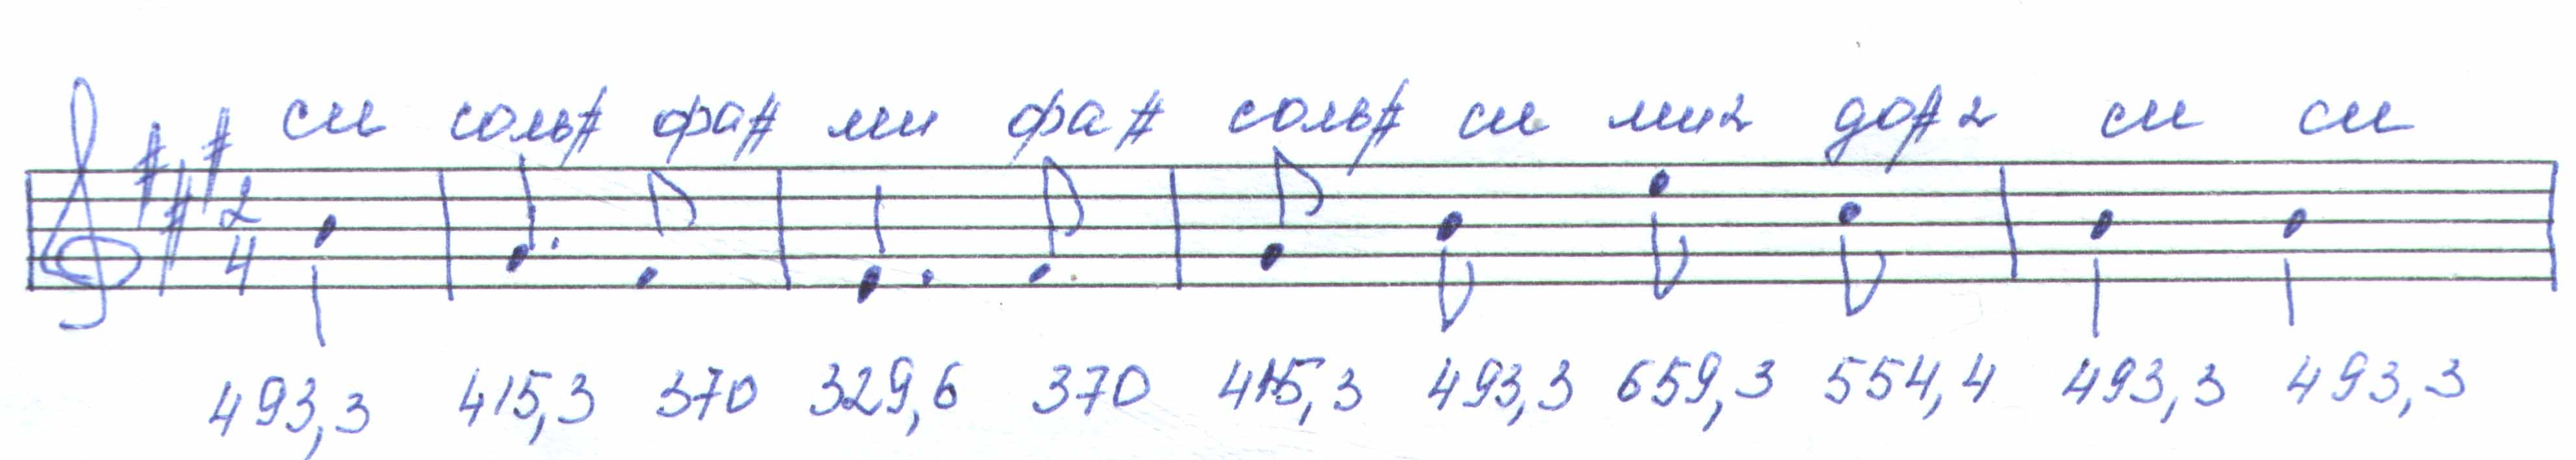 си соль# фа# ми фа# соль# си ми2 до#2 си си
2
4
493,3 415,3 370 329,6 370 415,3 493,3 659,3 554,4 493,3 493,3